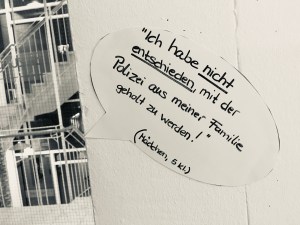 "Ich habe nicht
entschieden, mit der
Polizei aus meiner Familie
geholt zu werden!"
(Mädchen, 5 Kl.)